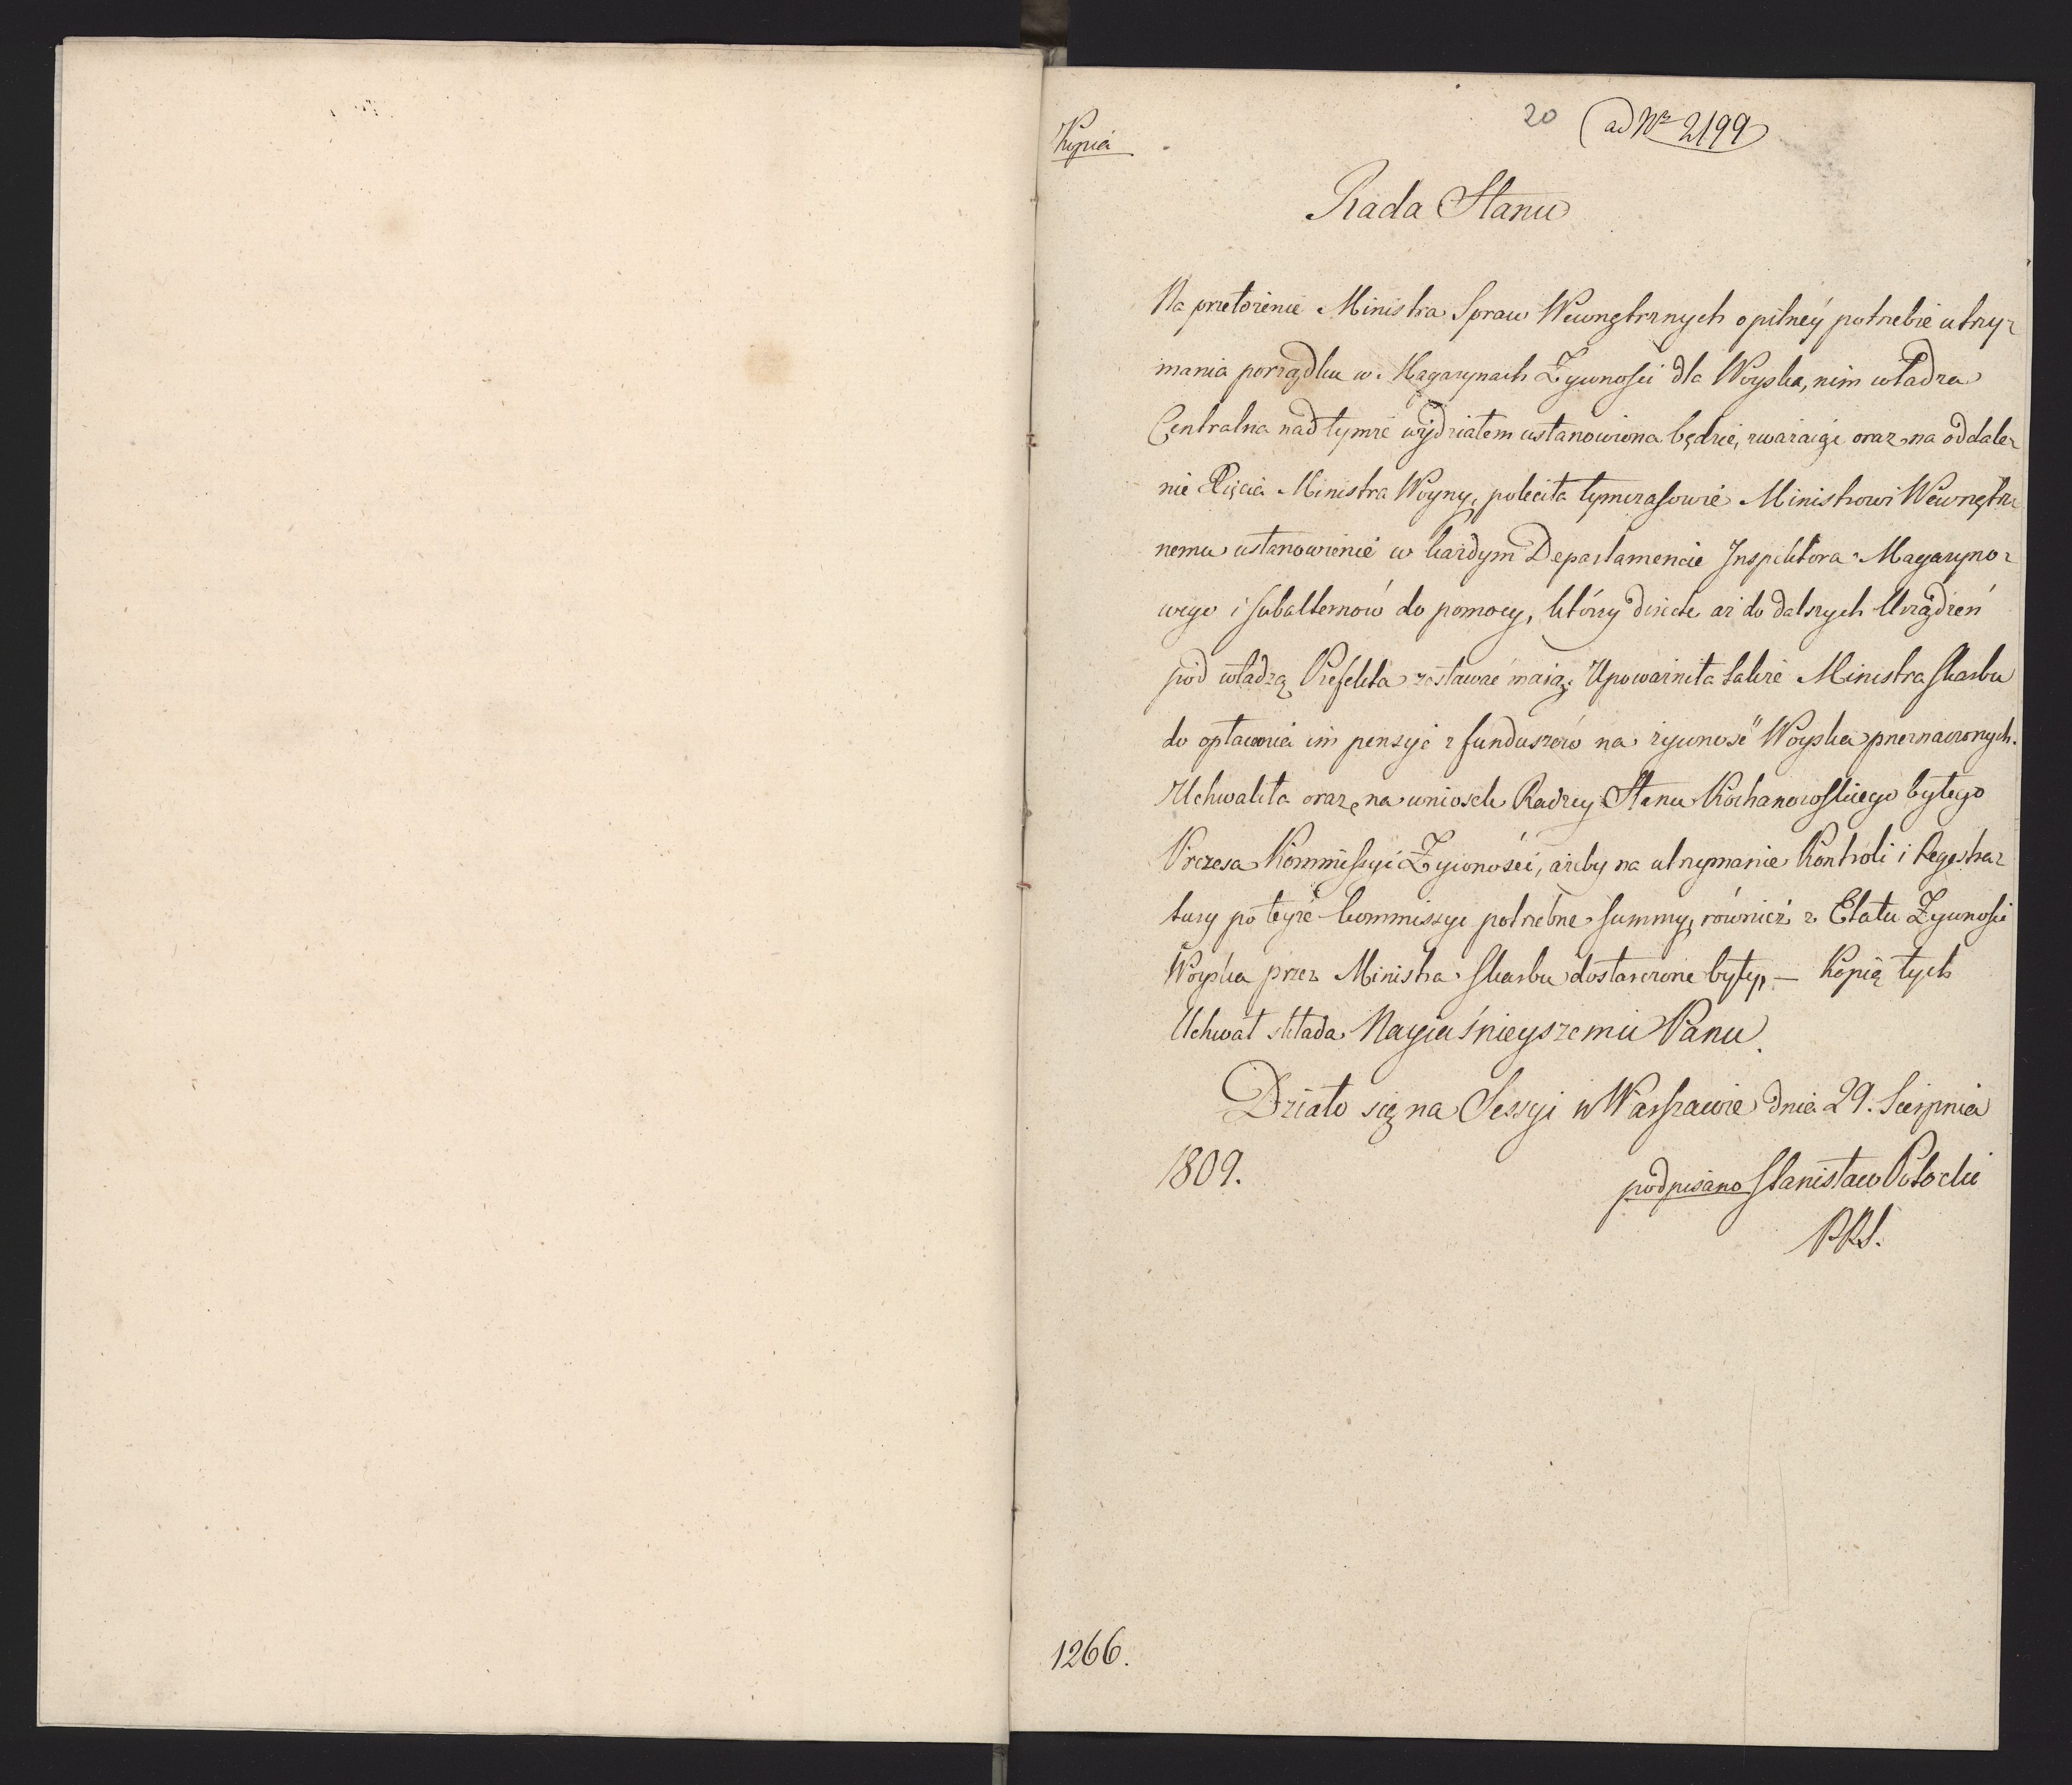 Kopia
20 ad Nr 2199
Rada Stanu
Na przełożenie Ministra Spraw Wewnętrznych o pilnéy potrzebie utrzy-
mania porządku w Magazynach Żywności dla Woyska, nim władza
Centralna nad tymże wydziałem ustanowiona będzie, zważaiąc oraz na oddale-
nie Xięcia Ministra Woyny, poleciła tymczasowie Ministrowi Wewnętrz-
nemu ustanowienie w każdym Departamencie Inspektora Magazyno-
wego i subalternów do pomocy, którzy directe aż do dalszych Urządzeń
pod władzą Prefekta zostawać maią. Upoważniła także Ministra Skarbu
do opłacenia im pensyi z funduszów na żywność Woyska przeznaczonych.
Uchwaliła oraz, na wniosek Radzcy Stanu Kochanowskiego byłego
Prezesa Kommissyi Żywności, ażeby na utrzymanie Kontroli i Regestra-
tury po teyże kommissyi potrzebne summy, również z Etatu Żywności
Woyska przez Ministra Skarbu dostarczone były, — Kopią tych
Uchwał składa Nayiaśnieyszemu Panu.
Działo się na Sessyi w Warszawie dnia 29. Sierpnia
1809.
podpisano Stanisław Potocki
PRS.
1266.